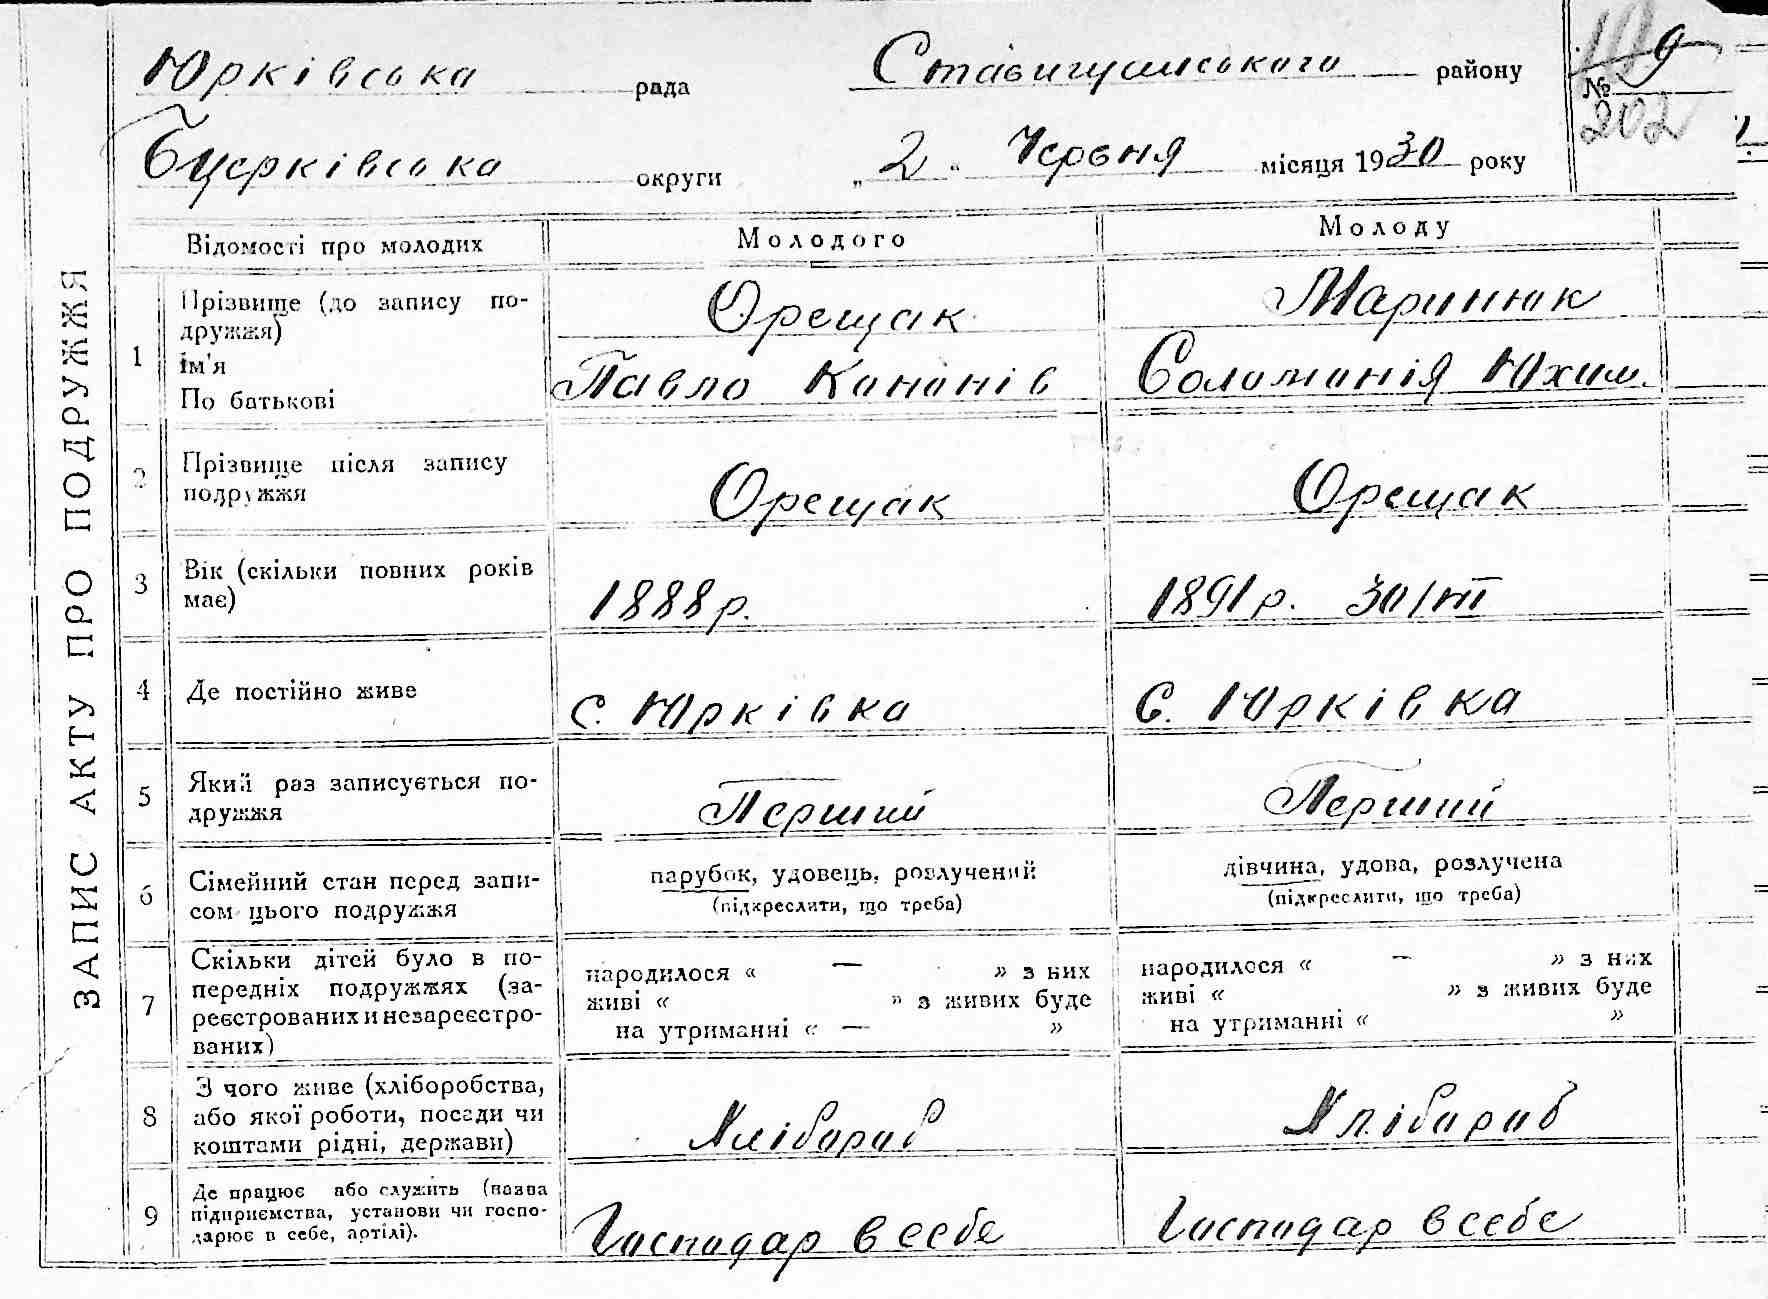 ЗАПИС АКТУ ПРО ПОДРУЖЖЯ
Юрківська рада
Ставищанського району
№ 9
202
Бцерківська округи
„ 2 “ Червня місяця 1930 року
Відомості про молодих
Молодого
Молоду
1
Прізвище (до запису по-
дружжя)
ім'я
По батькові
Орещак
Павло Кононів
Маринюк
Соломонія Юхим.
2
Прізвище після запису
подружжя
Орещак
Орещак
3
Вік (скільки повних років
має)
1888 р.
1891 р. 30/III
4
Де постійно живе
с. Юрківка
с. Юрківка
5
Який раз записується по-
дружжя
Перший
Перший
6
Сімейний стан перед запи-
сом цього подружжя
парубок, удовець, розлучений
(підкреслити, що треба)
дівчина, удова, розлучена
(підкреслити, що треба)
7
Скільки дітей було в по-
передніх подружжях (за-
реєстрованих и незареєстро-
ваних)
народилося « — » з них
живі « » з живих буде
на утриманні « — »
народилося « — » з них
живі « » з живих буде
на утриманні « »
8
З чого живе (хліборобства,
або якої роботи, посади чи
коштами рідні, держави)
Хлібороб
Хлібороб
9
Де працює або служить (назва
підприємства, установи чи госпо-
дарює в себе, артілі).
Господар в себе
Господар в себе